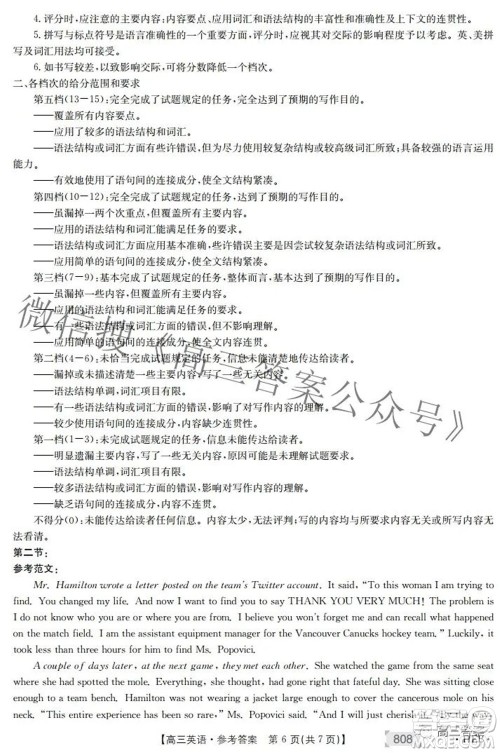 4. 评分时,应注意的主要内容:内容要点、应用词汇和语法结构的丰富性和准确性及上下文的连贯性。
5. 拼写与标点符号是语言准确性的一个重要方面,评分时,应视其对交际的影响程度予以考虑。英、美拼
写及词汇用法均可接受。
6. 如书写较差,以致影响交际,可将分数降低一个档次。
二、各档次的给分范围和要求
第五档(13—15):完全完成了试题规定的任务,完全达到了预期的写作目的。
——覆盖所有内容要点。
——应用了较多的语法结构和词汇。
——语法结构或词汇方面有些许错误,但为尽力使用较复杂结构或较高级词汇所致;具备较强的语言运用
能力。
——有效地使用了语句间的连接成分,使全文结构紧凑。
第四档(10—12):完全完成了试题规定的任务,达到了预期的写作目的。
——虽漏掉一两个次重点,但覆盖所有主要内容。
——应用的语法结构和词汇能满足任务的要求。
——语法结构或词汇方面应用基本准确,些许错误主要是因尝试较复杂语法结构或词汇所致。
——应用简单的语句间的连接成分,使全文结构紧凑。
第三档(7—9):基本完成了试题规定的任务,整体而言,基本达到了预期的写作目的。
——虽漏掉一些内容,但覆盖所有主要内容。
——应用的语法结构和词汇能满足任务的要求。
——有一些语法结构或词汇方面的错误,但不影响理解。
——应用简单的语句间的连接成分,使全文内容连贯。
第二档(4—6):未恰当完成试题规定的任务,信息未能清楚地传达给读者。
——漏掉或未描述清楚一些主要内容,写了一些无关内容。
——语法结构单调,词汇项目有限。
——有一些语法结构或词汇方面的错误,影响了对写作内容的理解。
——较少使用语句间的连接成分,内容缺少连贯性。
第一档(1—3):未完成试题规定的任务,信息未能传达给读者。
——明显遗漏主要内容,写了一些无关内容,原因可能是未理解试题要求。
——语法结构单调,词汇项目有限。
——较多语法结构或词汇方面的错误,影响对写作内容的理解。
——缺乏语句间的连接成分,内容不连贯。
不得分(0):未能传达给读者任何信息。内容太少,无法评判;写的内容均与所要求内容无关或所写内容无
法看清。
第二节:
参考范文:
Mr. Hamilton wrote a letter posted on the team's Twitter account. It said, "To this woman I am trying to
find. You changed my life. And now I want to find you to say THANK YOU VERY MUCH! The problem is
I do not know who you are or where you are from. I believe you won't forget me and can recall what happened
on the match field. I am the assistant equipment manager for the Vancouver Canucks hockey team." Luckily, it
took less than three hours for him to find Ms. Popovici.
A couple of days later, at the next game, they met each other. She watched the game from the same seat
where she had spotted the mole. Everything, she thought, had gone right that fateful day. She was sitting close
enough to a team bench. Hamilton was not wearing a jacket large enough to cover the cancerous mole on his
neck. "This entire experience has been so rare," Ms. Popovici said. "And I will just cherish it.
【高三英语·参考答案 第 6 页(共 7 页)】
808
微信搜《高三答案公众号》